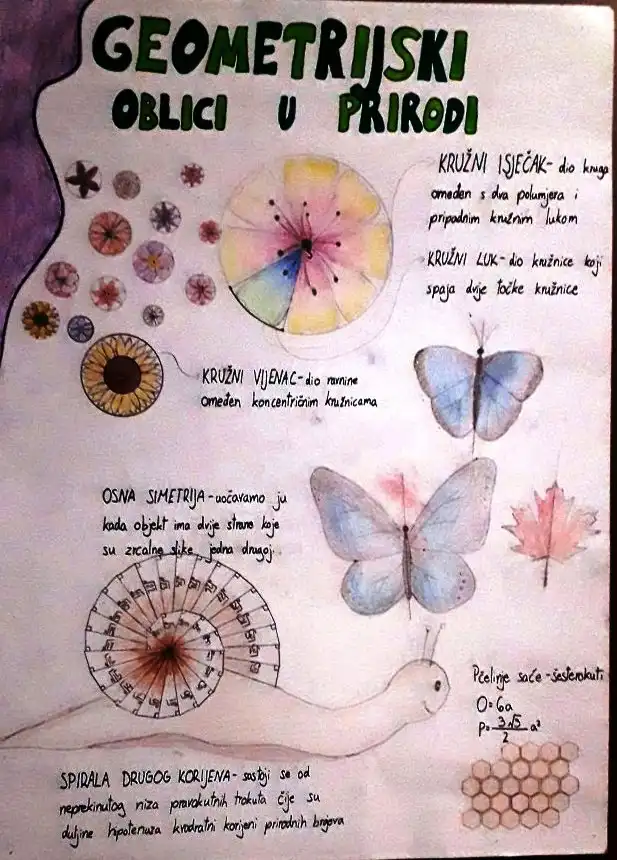 GEOMETRIJSKI
OBLICI U PRIRODI
KRUŽNI ISJEČAK - dio kruga
omeđen s dva polumjera i
pripadnim kružnim lukom
KRUŽNI LUK - dio kružnice koji
spaja dvije točke kružnice
KRUŽNI VIJENAC - dio ravnine
omeđen koncentričnim kružnicama
OSNA SIMETRIJA - uočavamo ju
kada objekt ima dvije strane koje
su zrcalne slike jedna drugoj.
Pčelinje saće - šesterokuti
O = 6a
P = 3√3/2 a²
SPIRALA DRUGOG KORIJENA - sastoji se od
neprekinutog niza pravokutnih trokuta čije su
duljine hipotenuza kvadratni korijeni prirodnih brojeva